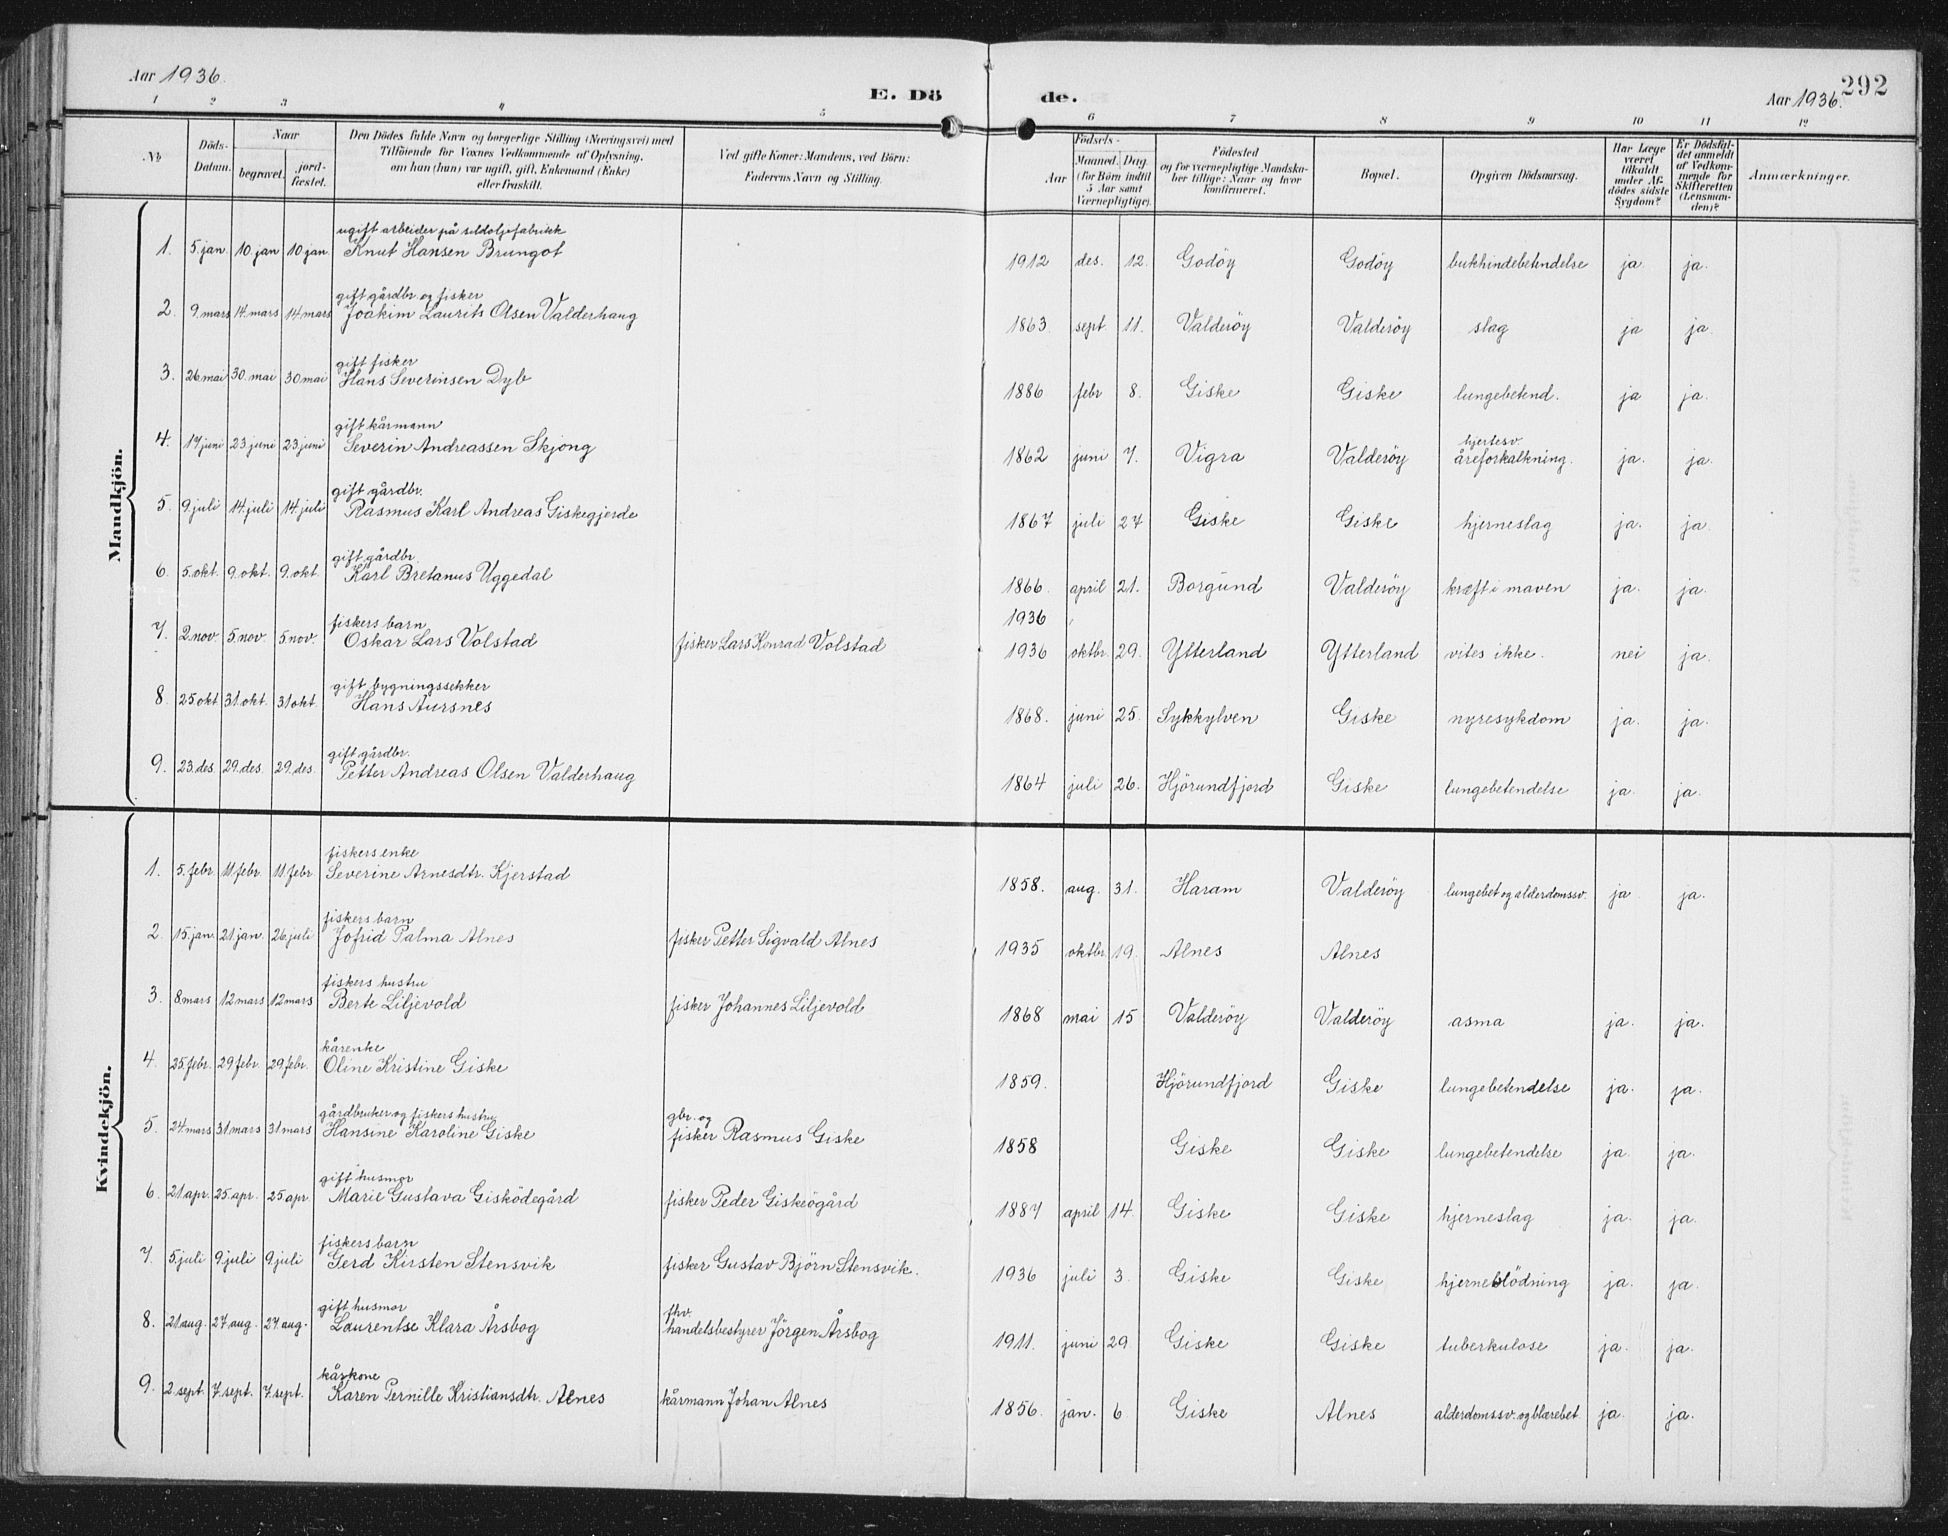 Aar 1936.
E. Dö
de.
Aar 1936.
292
1 2 3 4 5 6 7 8 9 10 11 12
No
Döds-Datum.
Naar
begravet.
jordfæstet.
Den Dödes fulde Navn og borgerlige Stilling (Næringsvei) med Tilföiende for Voxnes Vedkommende af Oplysning, om han (hun) var ugift, gift, Enkemand (Enke) eller fraskilt.
Ved gifte Koner: Mandens, ved Börn: Faderens Navn og Stilling.
Födsels-
Aar
Maaned. Dag. (for Börn indtil 5 Aar samt Værnepligtige).
Födested og for værnepligtige Mandskaber tillige: Naar og hvor konfirmeret.
Bopæl.
Opgiven Dödsaarsag.
Har Læge været tilkaldt under Afdödes sidste Sygdom?
Er Dödsfaldet anmeldt af Vedkommende for Skifteretten (Lensmanden)?
Anmærkninger.
Mandkjön.
ugift arbeider på sildoljefabrikk
1. 5. jan 10. jan 10 jan. Knut Hansen Brungot 1912 des. 12. Godöy Godöy bukhindebetendelse ja. ja.
gift gårdbr. og fisker
2. 9. mars 14. mars 14 mars Joakim Laurits Olsen Valderhaug 1863. sept. 11. Valderöy Valderöy slag ja ja.
gift fisker
3. 26 mai 30. mai 30 mai Hans Severinsen Dyb 1886 febr 8. Giske Giske lungebetend. ja ja.
gift kårmann
4. 17 juni 23 juni 23 juni Severin Andreassen Skjong 1862 juni 7. Vigra Valderöy hjertesv. åreforkalkning. ja. ja.
gift gårdbr.
5. 9. juli 14. juli 14. juli Rasmus Karl Andreas Giskegjerde 1867 juli 27 Giske Giske hjerneslag ja. ja.
gift gårdbr.
6. 5. okt. 9. okt. 9. okt. Karl Bretanus Uggedal 1866. april 21. Borgund Valderöy kræft i maven ja. ja.
1936
fiskers barn
7. 2 nov 5 nov. 5 nov. Oskar Lars Volstad fisker Lars Konrad Volstad 1936 oktbr. 29. Ytterland Ytterland vites ikke. nei ja.
gift bygningssekker
8. 25 okt 31. okt. 31 okt. Hans Aursnes 1868. juni 25. Sykkylven Giske nyresykdom ja. ja.
gift gårdbr.
9. 23. des. 29. des. 29. des. Petter Andreas Olsen Valderhaug 1864 juli 26. Hjörundfjord Giske lungebetendelse ja. ja.
Kvindekjön.
fiskers enke
1. 5. febr. 11 febr. 11. febr. Severine Arnesdtr. Kjerstad 1858. aug. 31. Haram Valderöy lungebet og alderdomssv. ja ja.
fiskers barn
2. 15. jan. 21 jan. 26. juli Jofrid Palma Alnes fisker Petter Sigvald Alnes 1935 oktbr. 19. Alnes Alnes
fiskers hustru
3. 8 mars 12 mars 12 mars Berte Liljevold fisker Johannes Liljevold 1868 mai 15 Valderöy Valderöy asma ja. ja.
kårenke
4. 25. febr. 29 febr. 29. febr. Oline Kristine Giske 1859. Hjörundfjord Giske lungebetendelse ja. ja.
gårdbruker og fiskers hustru gbr. og
5. 24. mars 31 mars 31 mars Hansine Karoline Giske fisker Rasmus Giske 1858 Giske Giske lungebetendelse ja. ja.
gift husmor
6. 21 apr. 25. apr. 25 apr Marie Gustava Gisködegård fisker Peder Giskeögård 1887 april 14. Giske Giske hjerneslag ja. ja.
fiskers barn
7. 5. juli 9. juli 9. juli Gerd Kirsten Stensvik fisker Gustav Björn Stensvik. 1936 juli 3. Giske Giske hjerneblödning ja. ja.
gift husmor fhv.
8. 21 aug. 27. aug. 27. aug. Laurentse Klara Årsbog handelsbestyrer Jörgen Årsbog 1911. juni 29 Giske Giske tuberkulose ja. ja.
kårkone
9. 2. sept. 7. sept. 7. sept. Karen Pernille Kristiansdtr. Alnes kårmann Johan Alnes 1856. jan. 6 Giske Alnes alderdomssv. og blærebet. ja. ja.